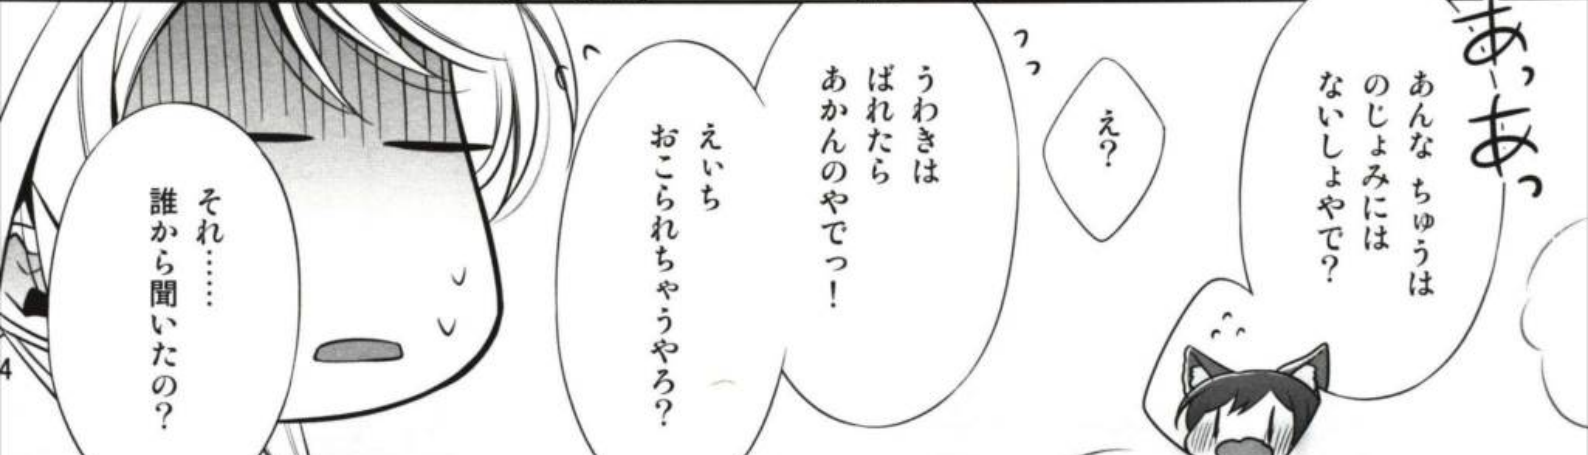 あーっ
あっ
あんな ちゅうは
のじょみには
ないしょやで？
え？
うわきは
ばれたら
あかんのやでっ！
えぃち
おこられちゃうやろ？
それ……
誰から聞いたの？
4